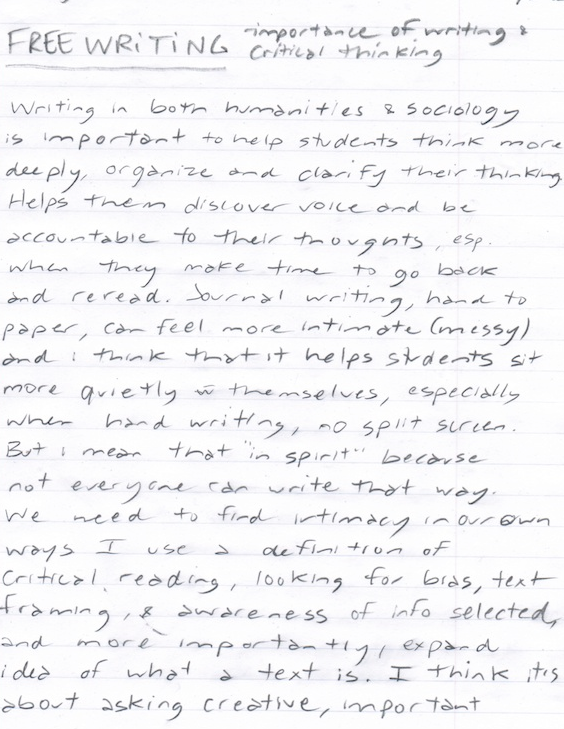 FREE WRITING importance of writing &
critical thinking
Writing in both humanities & sociology
is important to help students think more
deeply, organize and clarify their thinking
Helps them discover voice and be
accountable to their thoughts, esp.
when they make time to go back
and reread. Journal writing, hand to
paper, can feel more intimate (messy)
and i think that it helps students sit
more quietly w themselves, especially
when hand writing, no split screen.
But i mean that "in spirit" because
not everyone can write that way.
We need to find intimacy in our own
ways I use a definition of
critical reading, looking for bias, text
framing, & awareness of info selected,
and more importantly, expand
idea of what a text is. I think it's
about asking creative, important